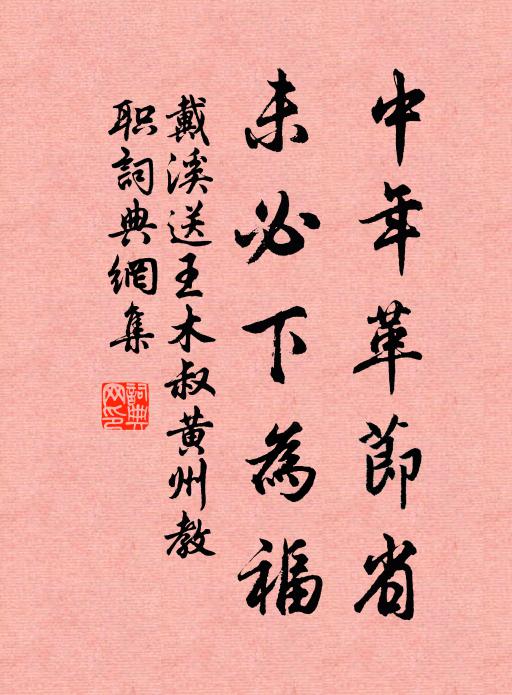 中年革節省
未必下為福
戴溪送王木叔黄州教
职詞典網集
詞典
网印